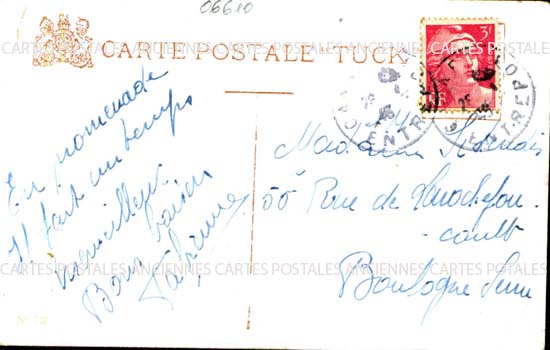 06610
CARTE POSTALE "TUCK
3F
En promenade
Il fait un temps
merveilleux
Bons baisers
Madame
55 Rue de Larochefou-
cault
Boulogne Seine
ENTREPO
CARTES POSTALES ANCIENNES CARTES POSTALES ANCIENNES CARTES POSTALES
CARTES POSTALES ANCIENNES CARTES POSTALES ANCIENNES CARTES POSTALES